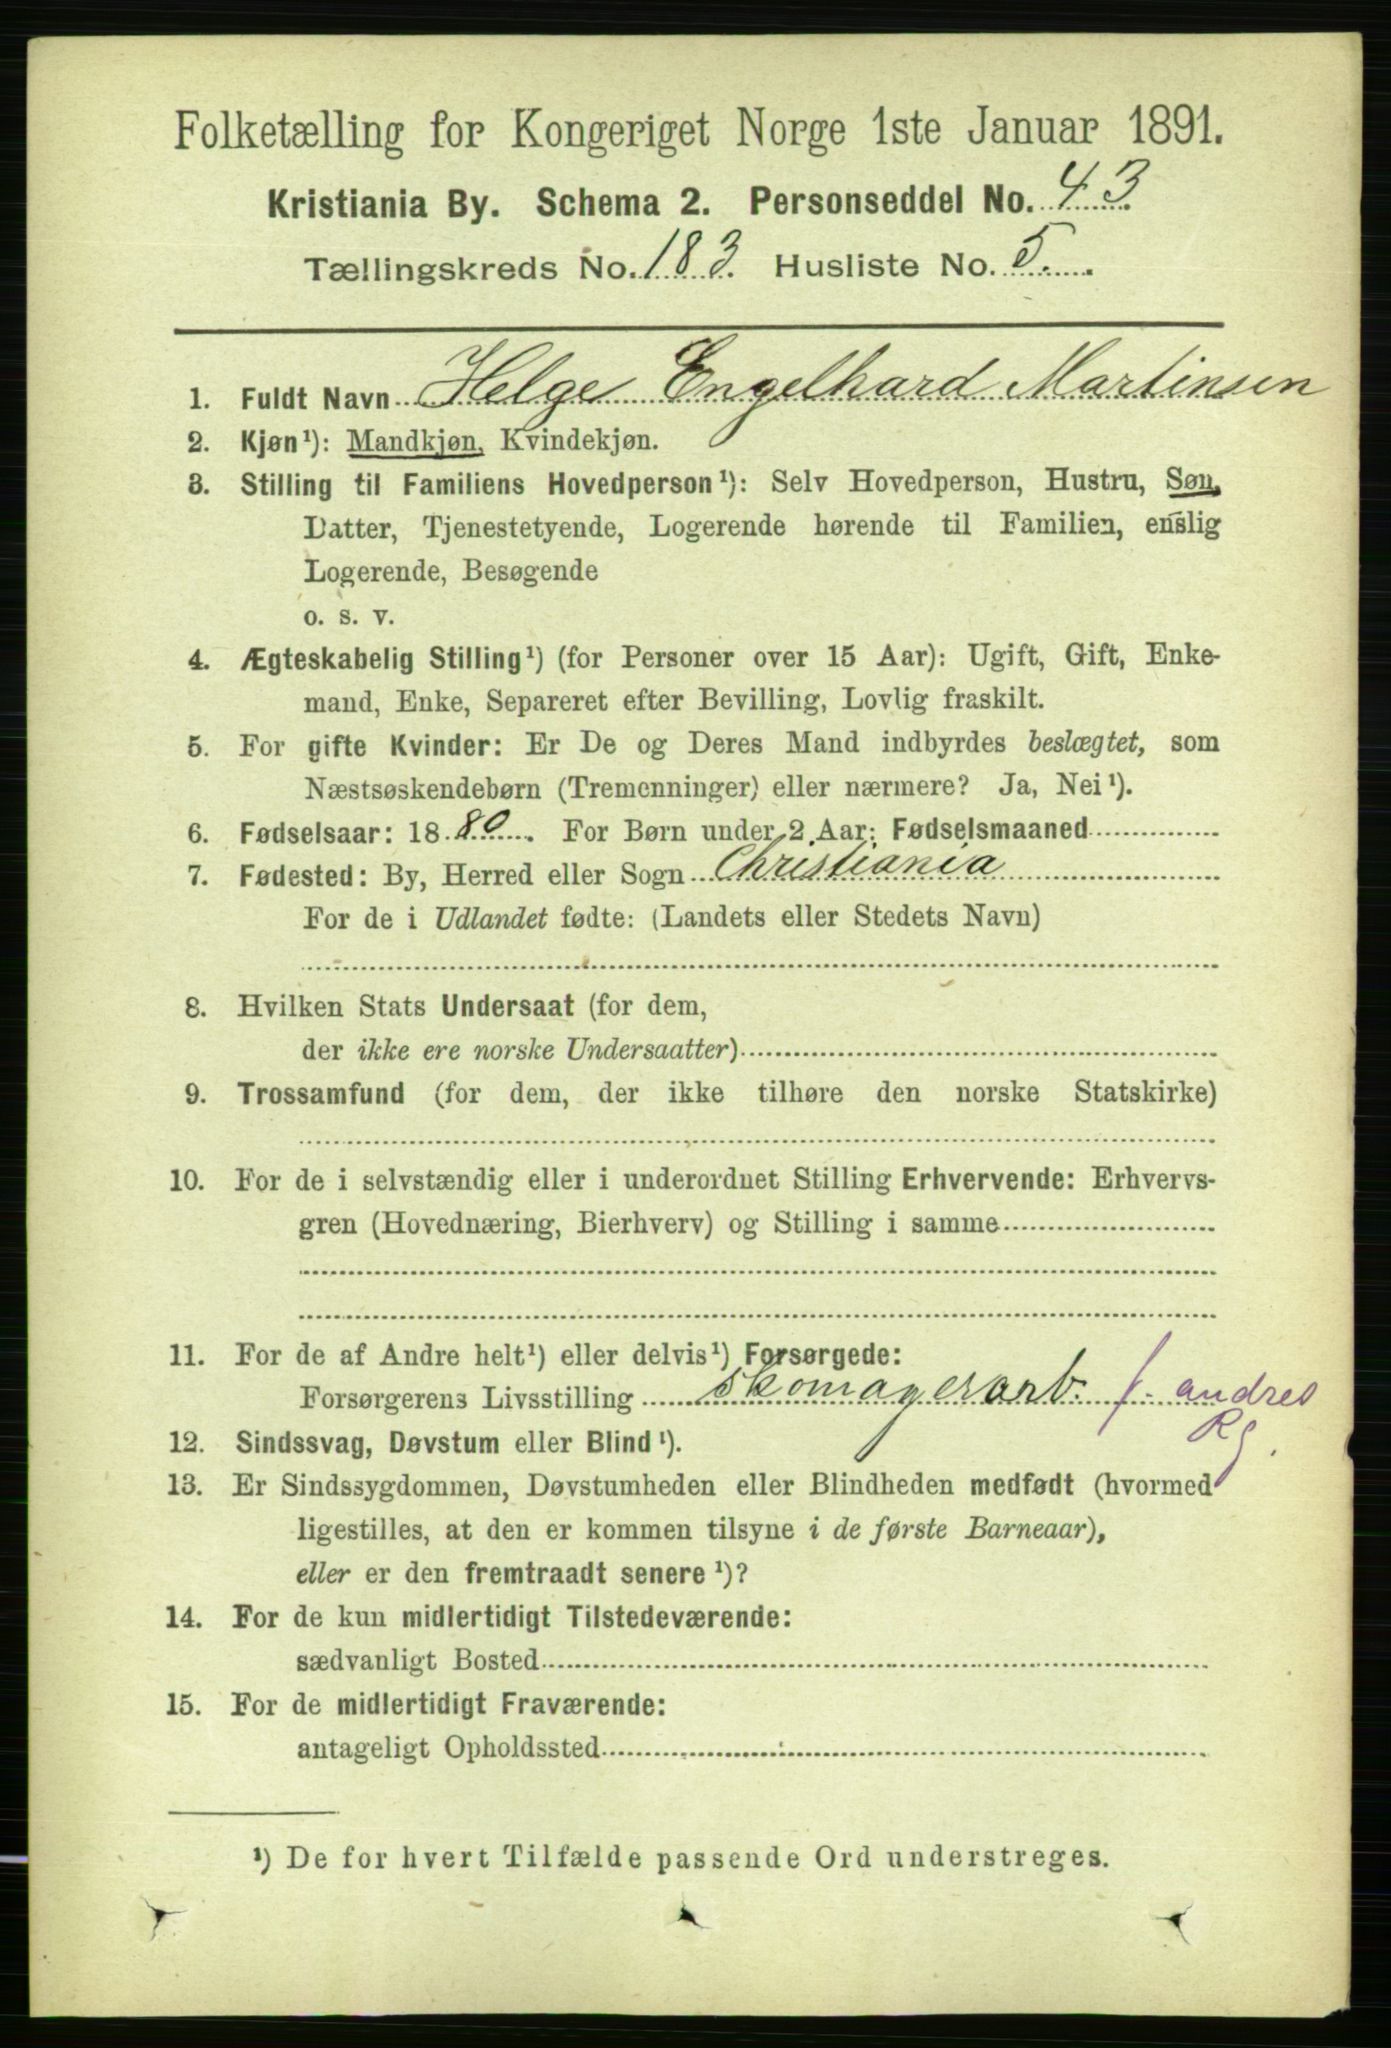 Folketælling for Kongeriget Norge 1ste Januar 1891.
Kristiania By. Schema 2. Personseddel No. 43
Tællingskreds No. 183. Husliste No. 5.
1. Fuldt Navn Helge Engelhard Martinsen
2. Kjøn¹): Mandkjøn, Kvindekjøn.
3. Stilling til Familiens Hovedperson¹): Selv Hovedperson, Hustru, Søn,
Datter, Tjenestetyende, Logerende hørende til Familien, enslig
Logerende, Besøgende
o. s. v.
4. Ægteskabelig Stilling¹) (for Personer over 15 Aar): Ugift, Gift, Enke-
mand, Enke, Separeret efter Bevilling, Lovlig fraskilt.
5. For gifte Kvinder: Er De og Deres Mand indbyrdes beslægtet, som
Næstsøskendebørn (Tremenninger) eller nærmere? Ja, Nei¹).
6. Fødselsaar: 1880. For Børn under 2 Aar: Fødselsmaaned
7. Fødested: By, Herred eller Sogn Christiania
For de i Udlandet fødte: (Landets eller Stedets Navn)
8. Hvilken Stats Undersaat (for dem,
der ikke ere norske Undersaatter)
9. Trossamfund (for dem, der ikke tilhøre den norske Statskirke)
10. For de i selvstændig eller i underordnet Stilling Erhvervende: Erhvervs-
gren (Hovednæring, Bierhverv) og Stilling i samme
11. For de af Andre helt¹) eller delvis¹) Forsørgede:
Forsørgerens Livsstilling Skomagerarb. f. andres
Rg.
12. Sindssvag, Døvstum eller Blind¹).
13. Er Sindssygdommen, Døvstumheden eller Blindheden medfødt (hvormed
ligestilles, at den er kommen tilsyne i de første Barneaar),
eller er den fremtraadt senere¹)?
14. For de kun midlertidigt Tilstedeværende:
sædvanligt Bosted
15. For de midlertidigt Fraværende:
antageligt Opholdssted
¹) De for hvert Tilfælde passende Ord understreges.